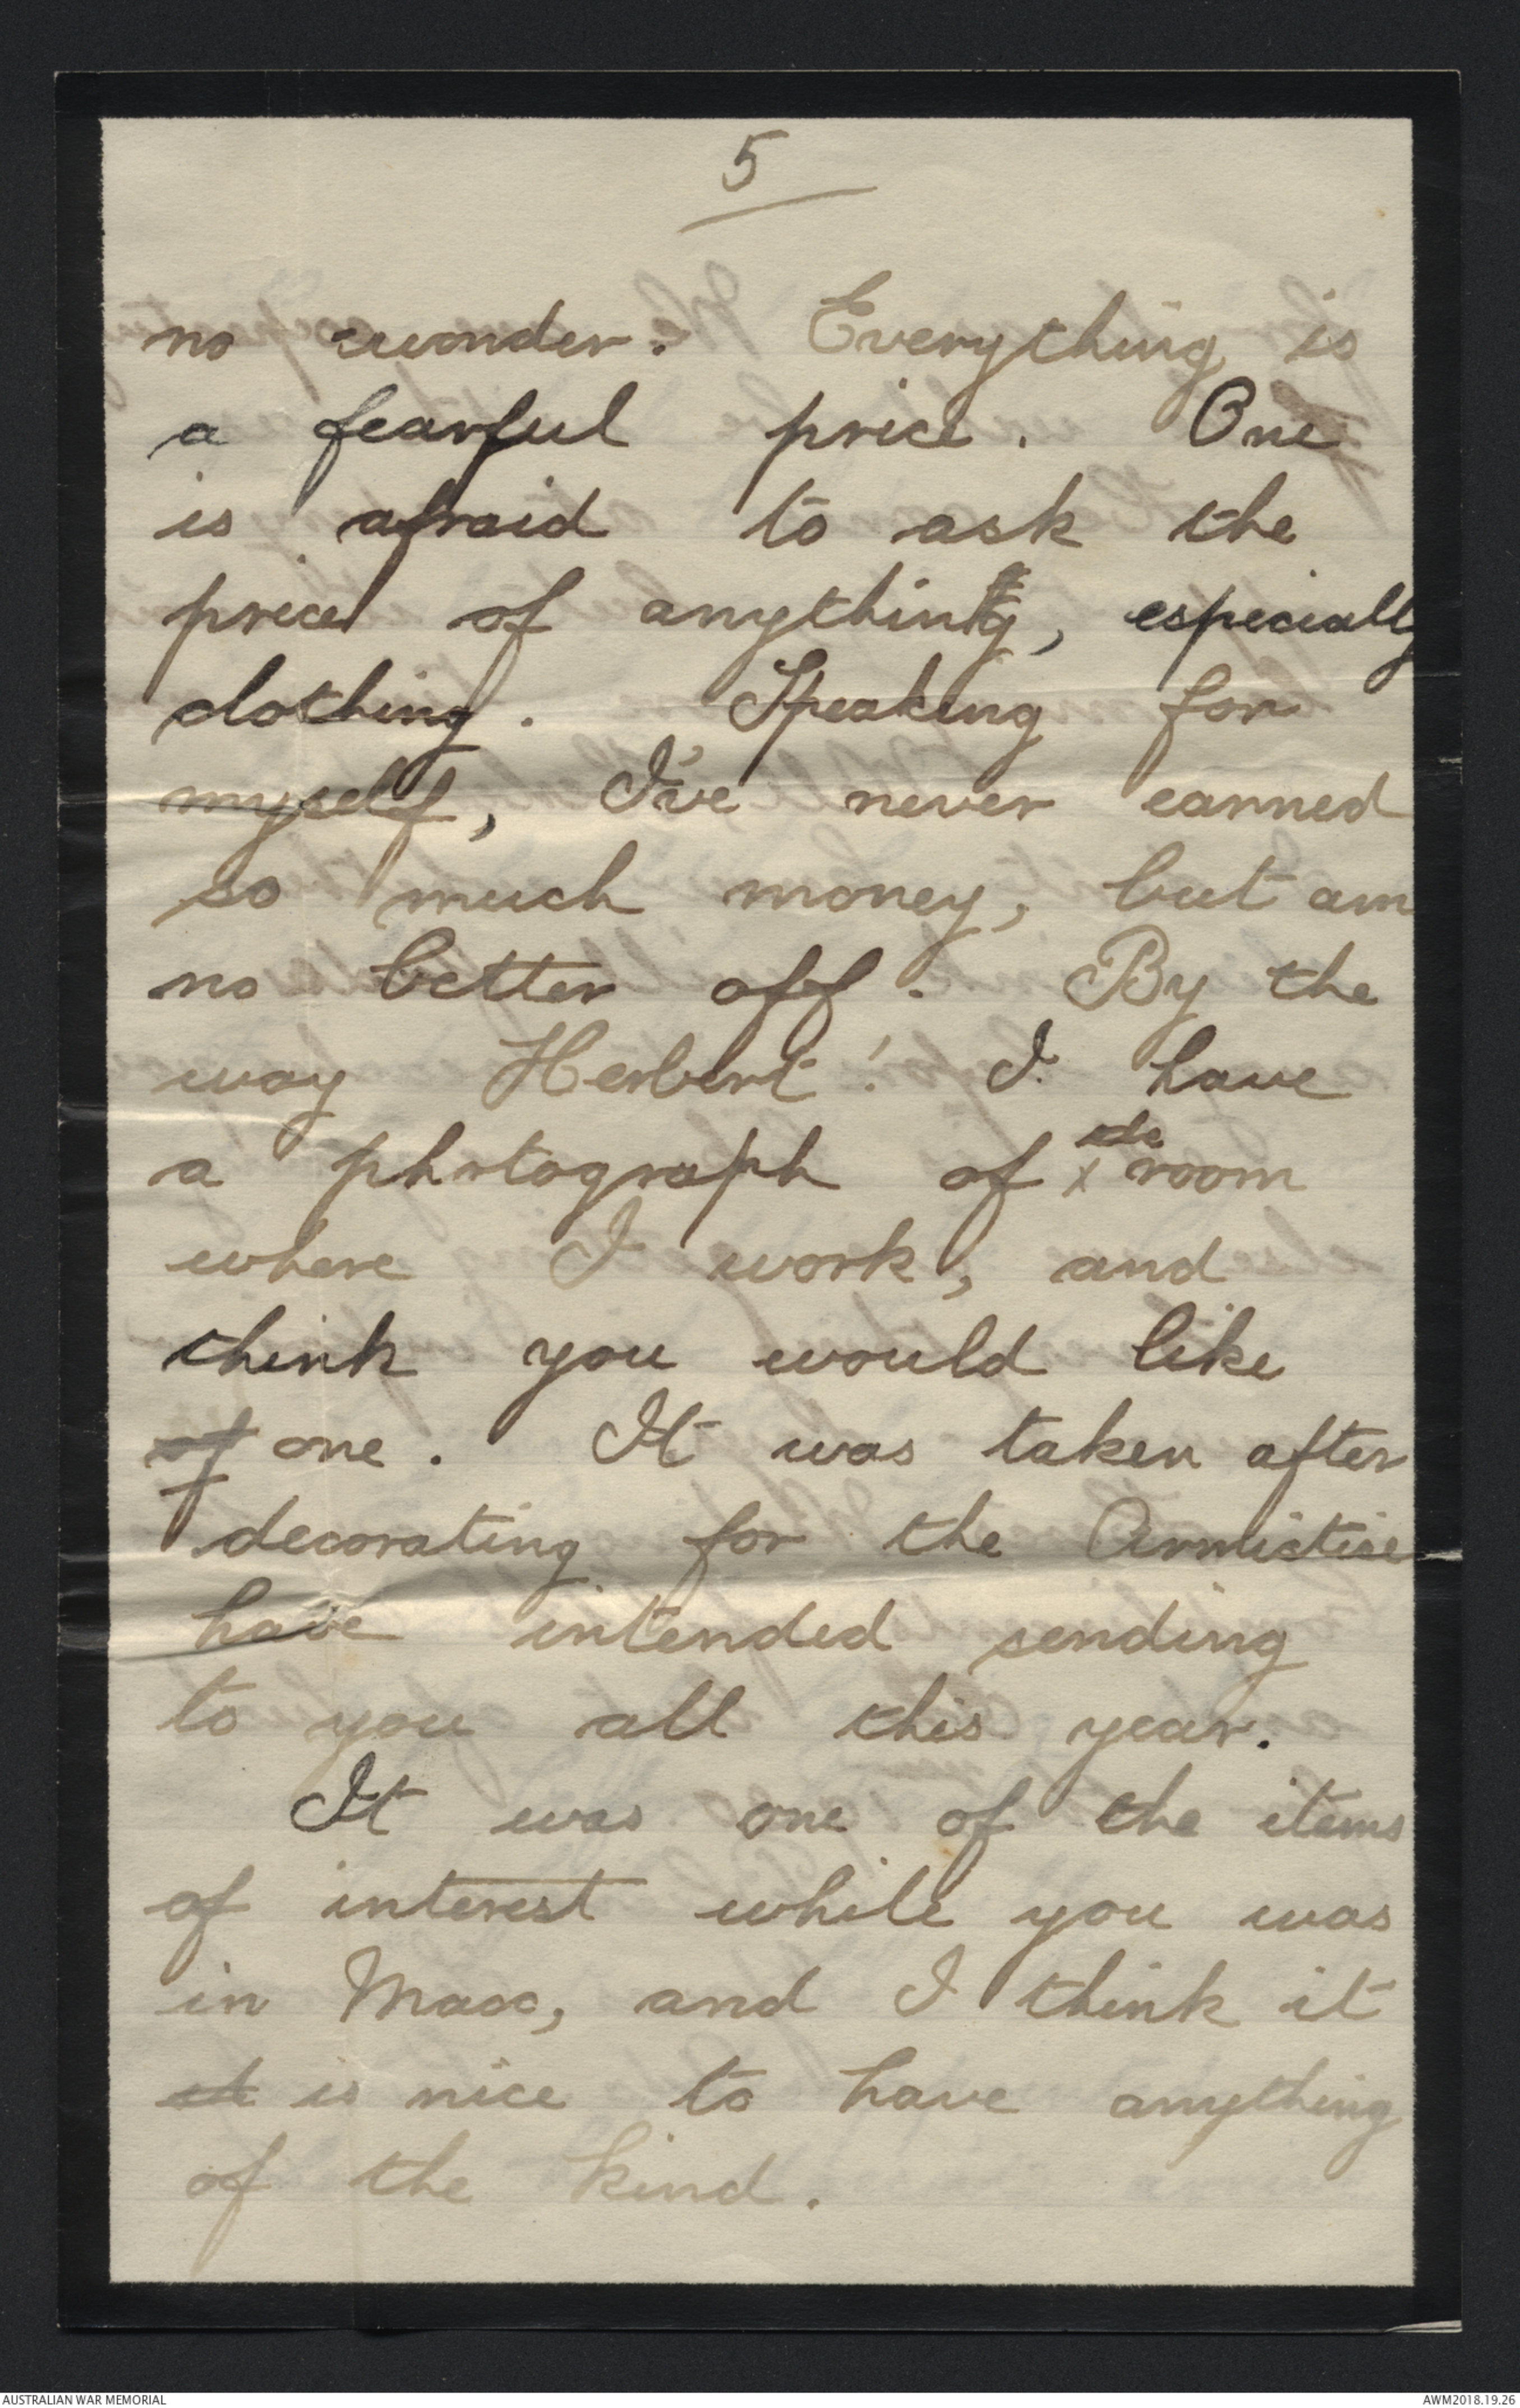 5
no wonder. Everything is
a fearful price. One
is afraid to ask the
price of anything, especially
clothing. Speaking for
myself, I've never earned
so much money, but am
no better off. By the
way Herbert! I have
a photograph of x the room
where I work, and
think you would like
of one. It was taken after
decorating for the Armistice
have intended sending
to you all this year.
It was one of the items
of interest while you was
in Mass, and I think it
it is nice to have anything
of the kind.
AUSTRALIAN WAR MEMORIAL
AWM2018.19.26